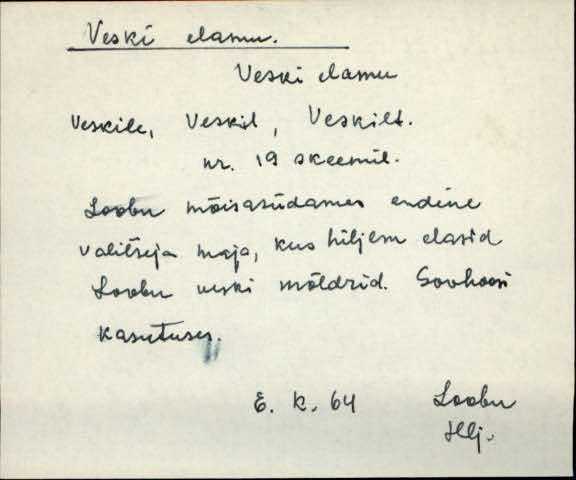 Veski elamu.
Veski elamu
Veskile, Veskil, Veskilt.
nr. 19 skeemil.
Loobu mõisasüdames endine
valitseja maja, kus hiljem elasid
Loobu veski möldrid. Sovhoosi
kasutuses.
E. K. 64 Loobu
Hlj.